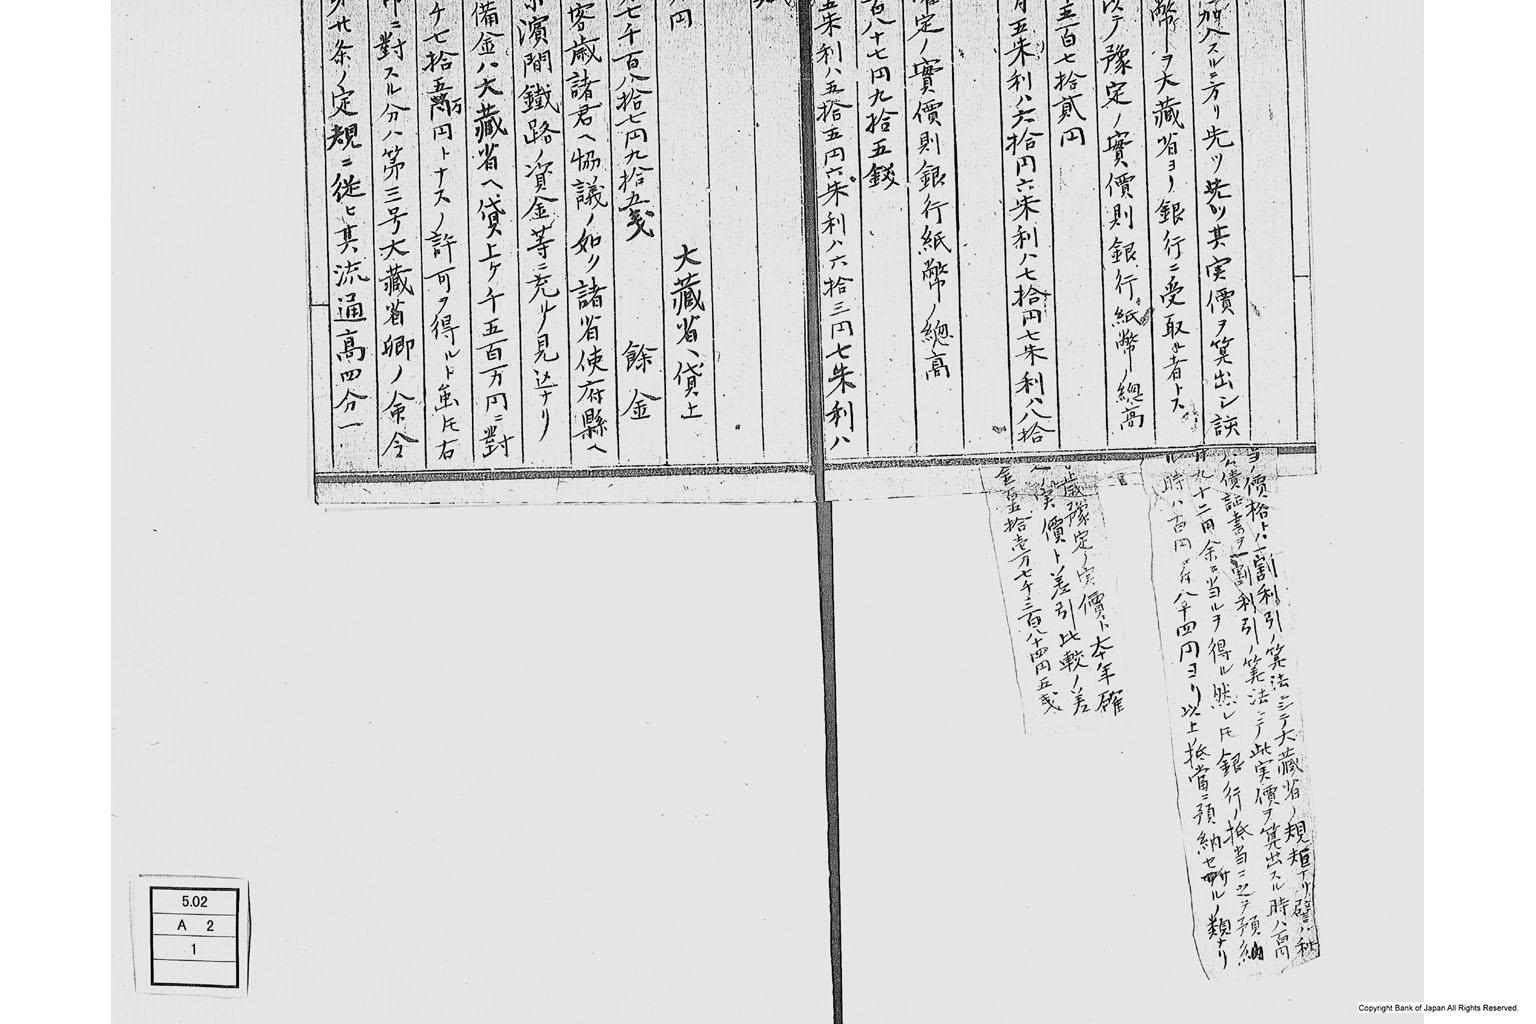 加入スルニ方リ先ツ其実價ヲ算出シ該
幣ヲ大藏省ヨリ銀行ニ受取ル者トス
以テ豫定ノ實價則銀行紙幣ノ總高
五百七拾貳円
五朱利八六拾円六朱利八七拾円七朱利八八拾
定ノ實價則銀行紙幣ノ總高
百八十七円九拾五錢
五朱利八五拾五円六朱利八六拾三円七朱利八
円
大藏省ヘ貸上
七千百八拾七円九拾五戔
餘金
客歳諸君ヘ協議ノ如ク諸省使府縣ヘ
濱間鐵路ノ資金等ニ充ルノ見込ナリ
備金ハ大藏省ヘ貸上ケ千五百万円ニ對
チ七拾五萬円トナスノ許可ヲ得ルト虽モ右
ニ對スル分ハ第三号大藏省卿ノ命令
廿条ノ定規ニ從ヒ其流通高四分一
價格トハ一割利引ノ算法ニシテ大藏省ノ規矩ナリ譬ハ
公債証書ヲ一割利引ノ算法ニテ此実價ヲ算出スル時ハ百円
九十二円余ニ当ルヲ得ル然レモ銀行ノ抵当ニ之ヲ預納
時ハ百円ニ付八十四円ヨリ以上ノ抵當ニ預納セサルノ類ナリ
歳豫定ノ実價ト本年確
実價ト差引比較ノ差
金五拾壱万七千三百八十四円五戔
5.02
A 2
1
Copyright Bank of Japan All Rights Reserved.